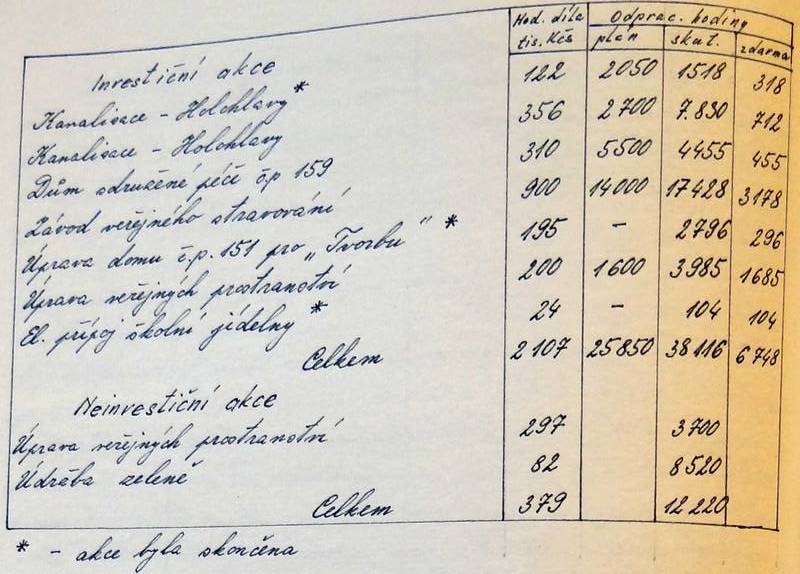 Hod. díla Odprac. hodiny
tis. Kčs plán skut. zdarma
Investiční akce
Kanalisace - Holohlavy * 122 2050 1518 318
Kanalisace - Holohlavy 356 2 700 7.830 712
Dům sdružené péče č.p 159 310 5500 4455 455
Závod veřejného stravování 900 14000 17428 3178
Úprava domu č.p. 151 pro „Tvorbu" * 195 - 2796 296
Úprava veřejných prostranství 200 1600 3985 1685
El. přípoj školní jídelny * 24 - 104 104
Celkem 2 107 25 850 38 116 6 748
Neinvestiční akce
Úprava veřejných prostranství 297 3700
Údržba zeleně 82 8520
Celkem 379 12 220
* - akce byla skončena